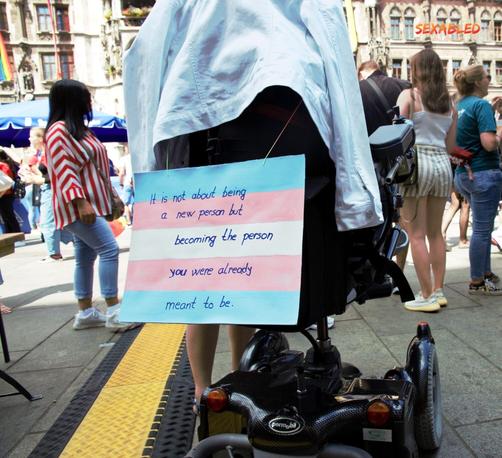 SEXABLED
It is not about being
a new person but
becoming the person
you were already
meant to be.
permobil